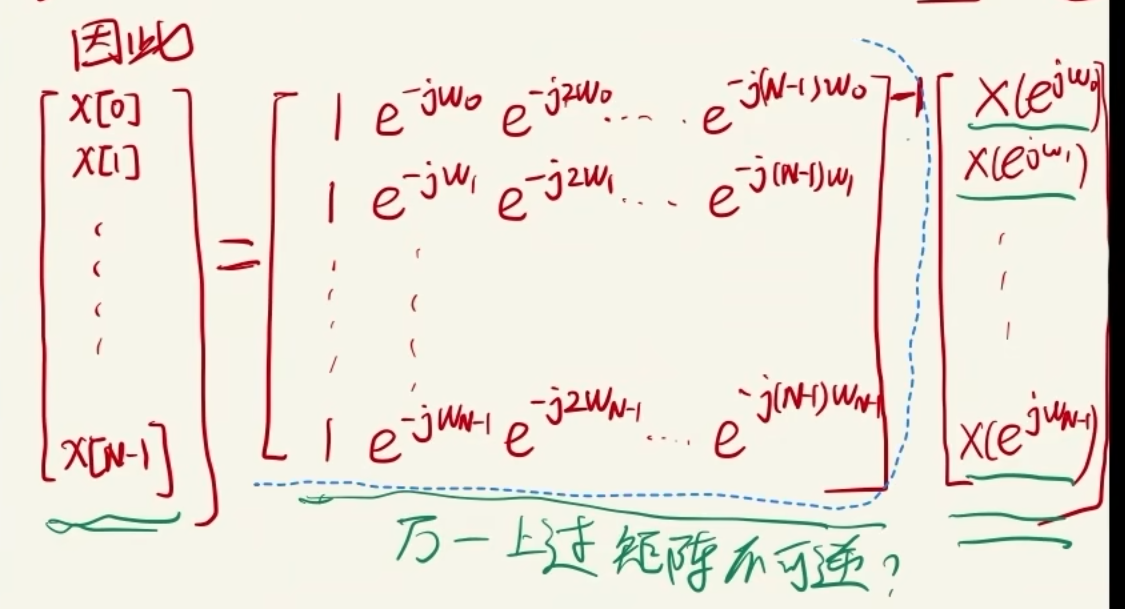 因此
[x[0] x[1] ⋮ x[N-1]] = [1 e^{-jω_0} e^{-j2ω_0} ⋯ e^{-j(N-1)ω_0}
1 e^{-jω_1} e^{-j2ω_1} ⋯ e^{-j(N-1)ω_1}
⋮ ⋮
1 e^{-jω_{N-1}} e^{-j2ω_{N-1}} ⋯ e^{-j(N-1)ω_{N-1}}]^{-1} [X(e^{jω_0}) X(e^{jω_1}) ⋮ X(e^{jω_{N-1}})]
万一上过矩阵不可逆?